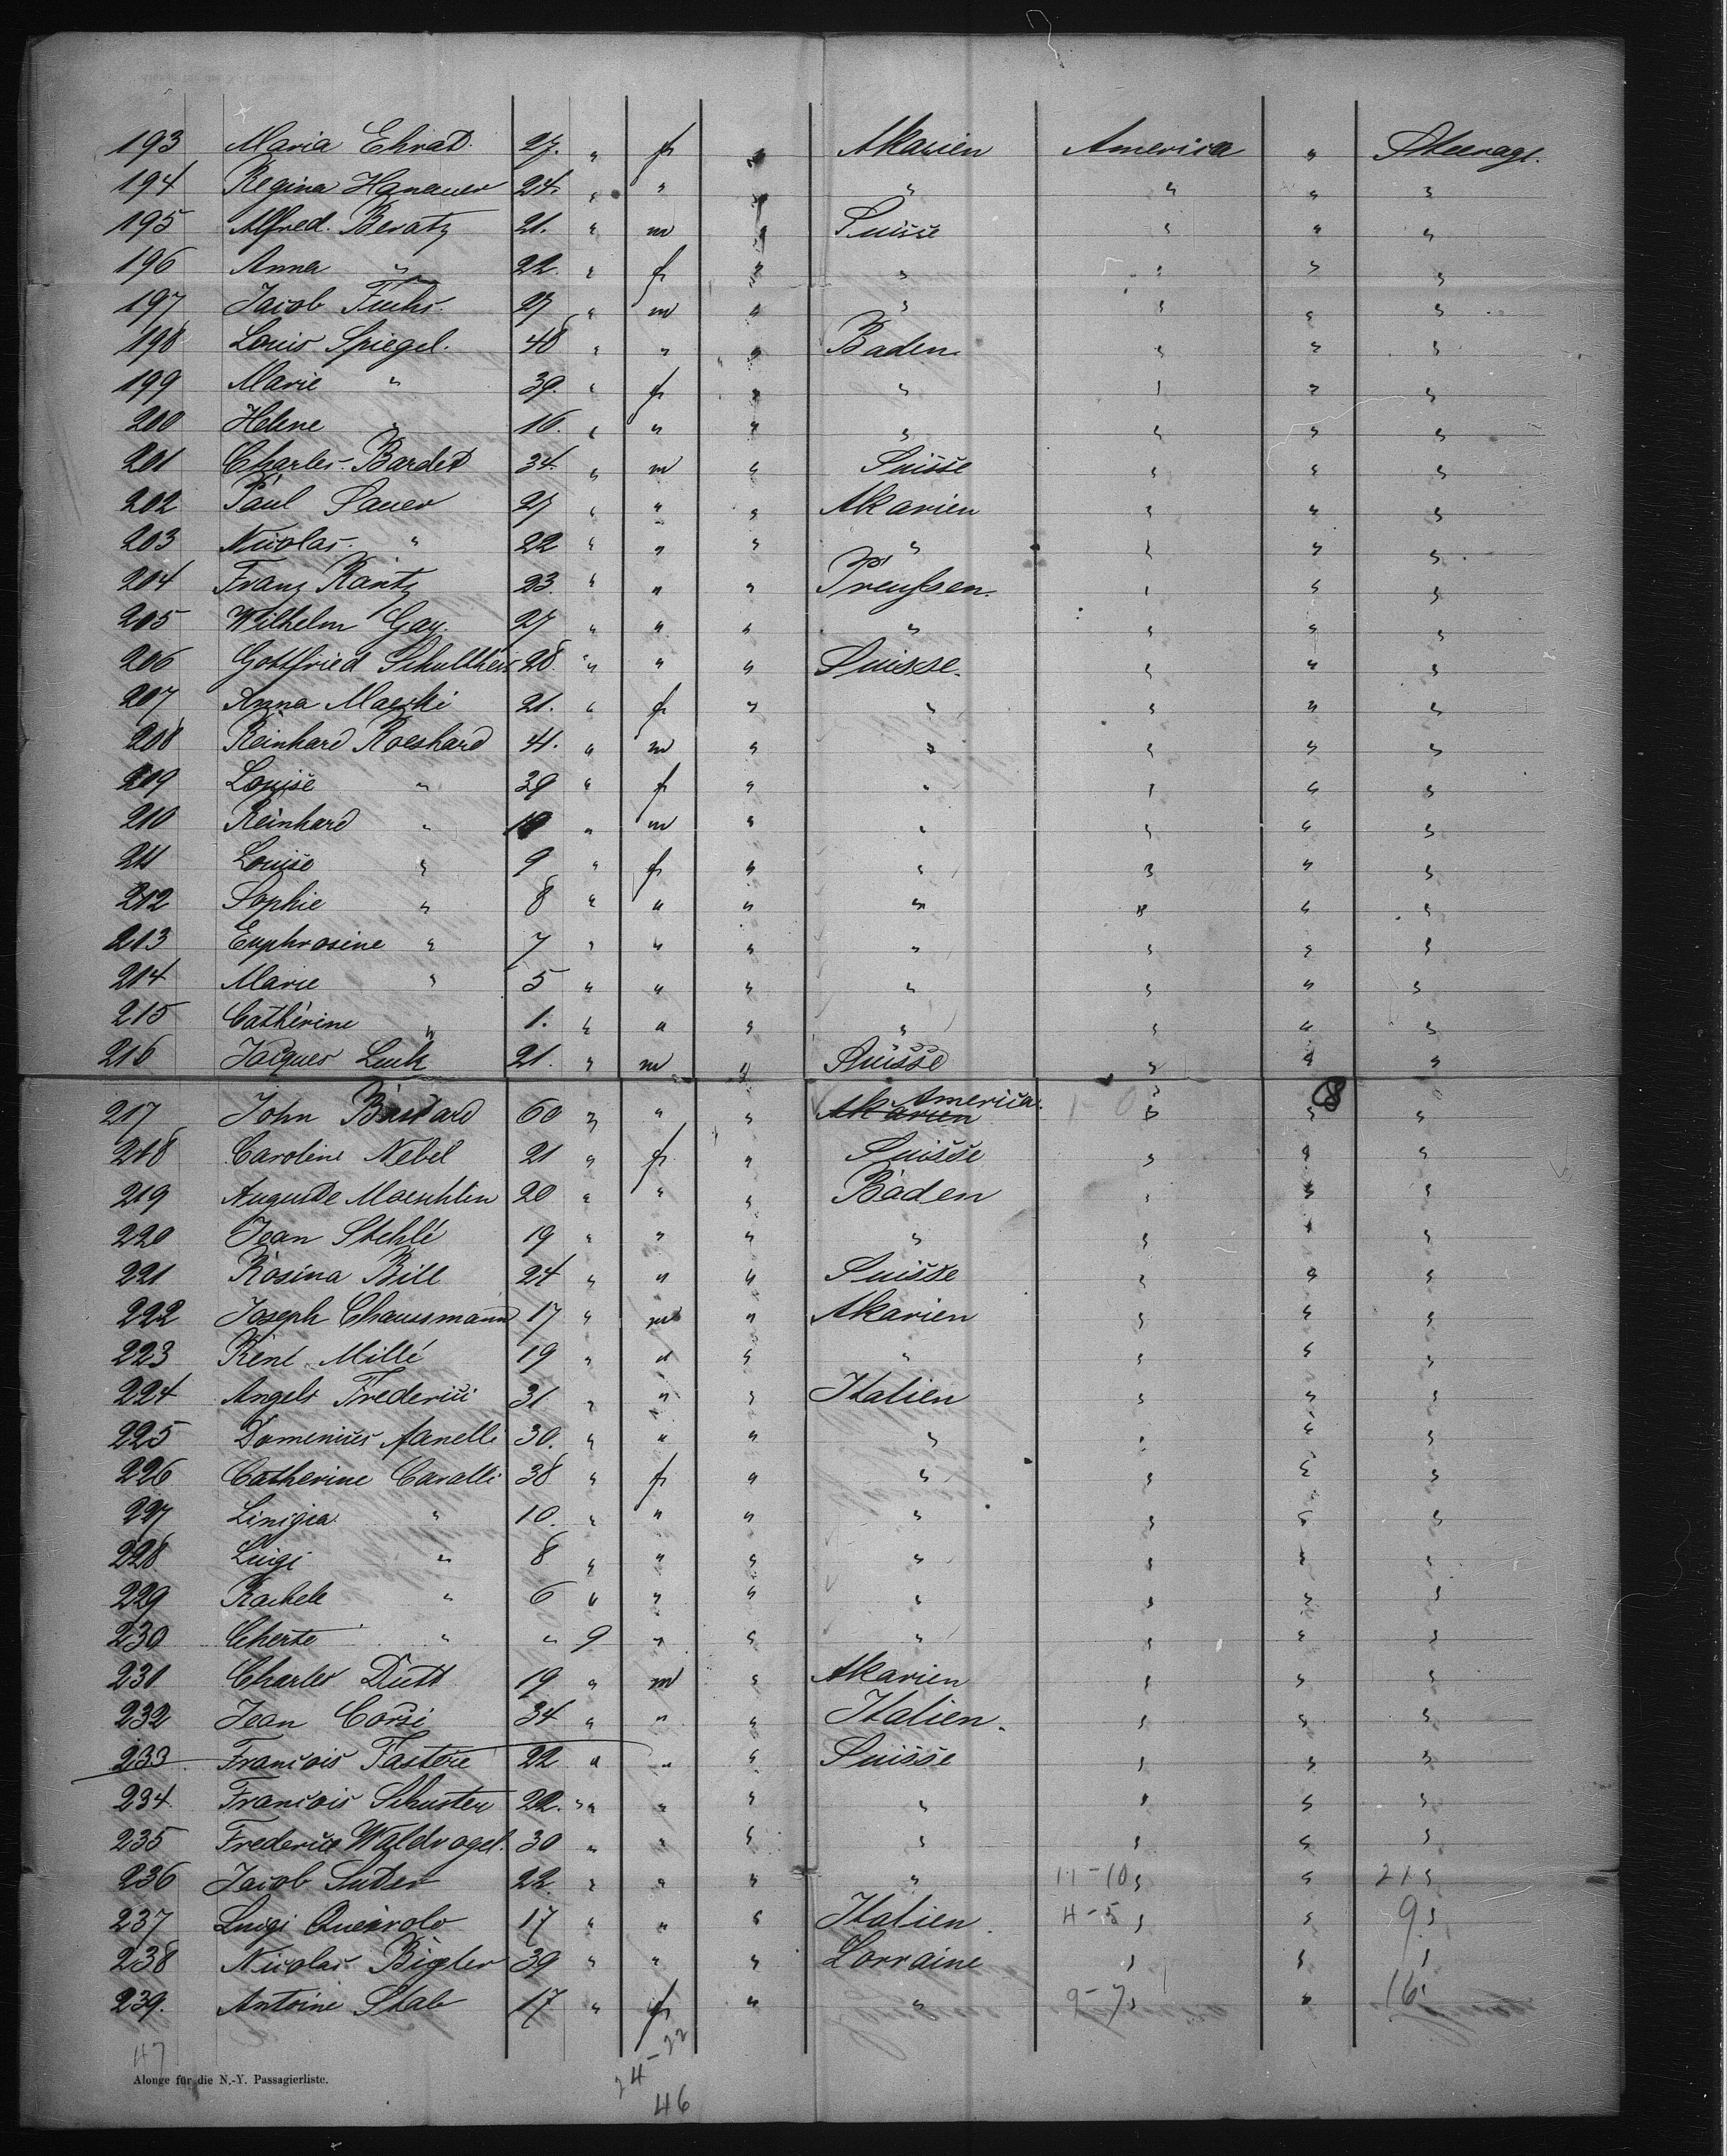 193 Maria Ehrat. 27. " fr " America " Steerage.
194 Regina Hanauer 24. " " " " " " "
195 Alfred. Beratz 21. " m " Suisse " " "
196 Anna " 22. " fr " " " " "
197 Jacob Fuchs. 27 " m " " " " "
198 Louis Spiegel. 48 " " " Baden " " "
199 Marie " 39. " fr " " " " "
200 Helene " 16. " " " " " " "
201 Charles Bardet 34. " m " Suisse " " "
202 Paul Sauer 27 " " " " " "
203 Nicolas " 22 " " " " " " "
204 Franz Kantz 23. " " " Preußen. " " "
205 Wilhelm Gay. 27 " " " " " " "
206 Gottfried Schultheis 28. " " " Suisse. " " "
207 Anna Maeski 21. " fr " " " " "
208 Reinhard Roeshard 41. " m " " " " "
209 Louise " 39 " fr " " " " "
210 Reinhard " " m " " " " "
211 Louise " 9 " fr " " " " "
212 Sophie " 8 " " " " " " "
213 Euphrosine " 7 " " " " " " "
214 Marie " 5 " " " " " " "
215 Cathérine " 1. " " " " " " "
216 Jacques Luck 21. " m " Suisse " " "
217 John 60 " " " America. " 8 " "
218 Caroline Nebel 21 " fr " Suisse " " "
219 Auguste Maechlin 20 " " " Baden " " "
220 Jean Stehlé 19 " " " " " " "
221 Rosina Bill 24 " " " Suisse " " "
222 Joseph Chaussmann 17 " m " " " "
223 René Millé 19 " " " " " " "
224 Angelo Frederici 31 " " " Italien " " "
225 Domenicus Fanelli 30. " " " " " " "
226 Catherine Cavalli 38 " fr " " " " "
227 Linigia " 10. " " " " " " "
228. Luigi " 8 " " " " " " "
229 Rachele " 6 " " " " " " "
230 " " 9 " " " " " "
231 Charles Dutt 19 " m " " " "
232 Jean Corsi 34 " " " Italien. " " "
233 François Tastore 22 " " " Suisse " " "
234. François Schuster 22. " " " " " " "
235 Frederice Waldvogel. 30 " " " " " " "
236 Jacob Suter 22. " " " " 11-10 " " 21 "
237 Luigi Queirolo 17 " " " Italien. 4-5 " " 9 "
238 Nicolas Bigler 39 " " " Lorraine " " "
239. Antoine Stab 17 " fr " " 9-7 " " 16 "
47
Alonge für die N.-Y. Passagierliste.
24-22
46